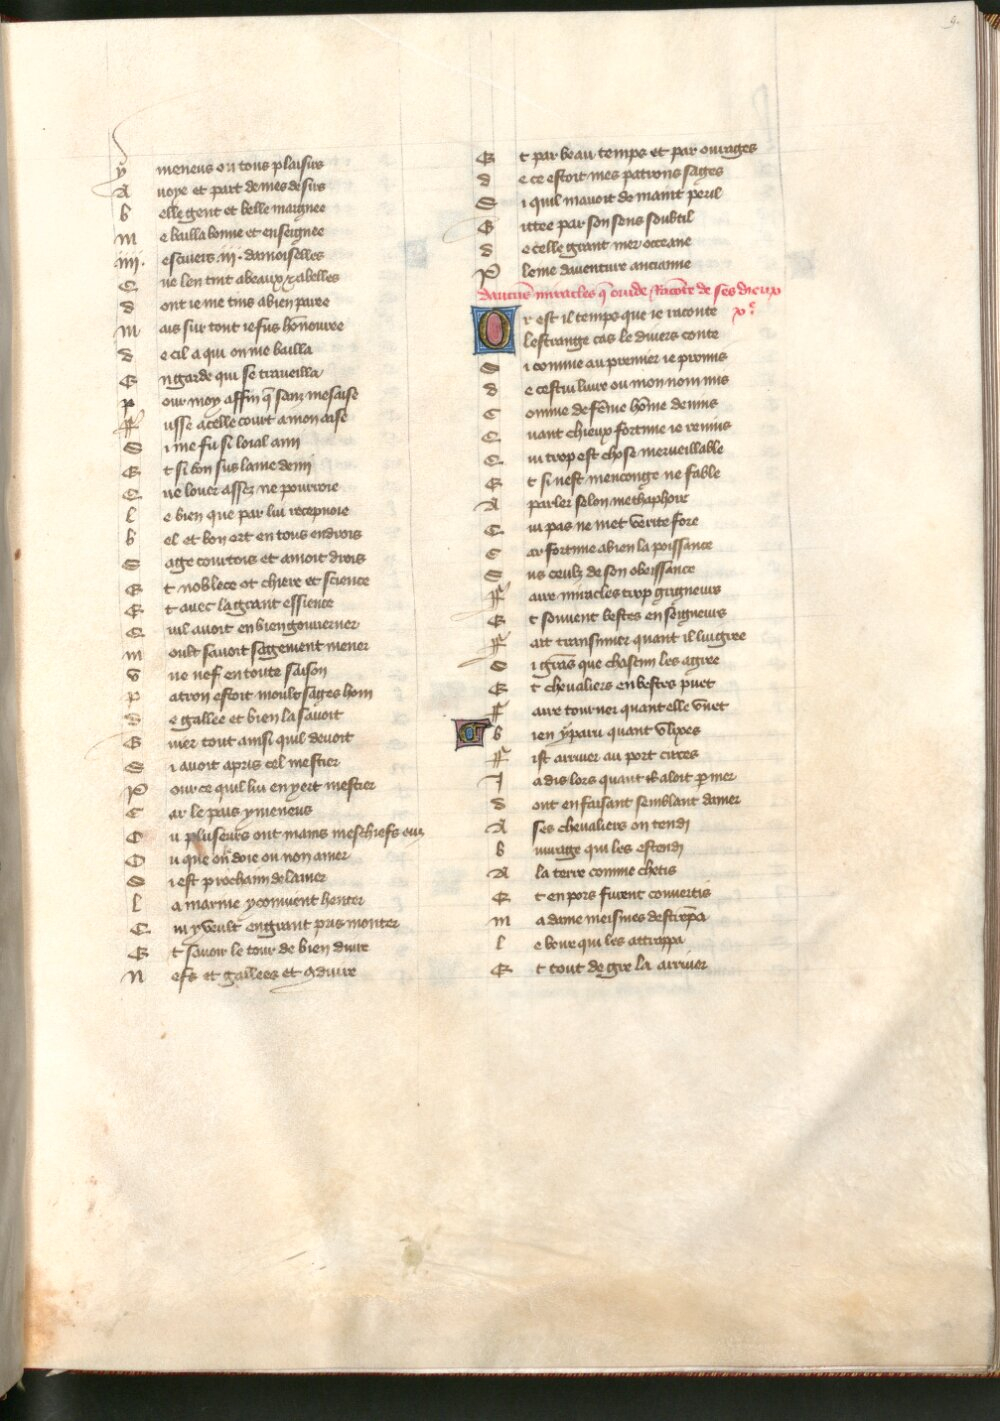 9.
ymeneus ou tous plaisirs
Avoye et part de mes desirs
belle gent et belle maignee
me bailla bonne et enseignee
iiii. escuiers .iii. damoiselles
Que len tint a beaux et a belles
dont ie me tins a bien paree
mais sur tout ie fus hōnouree
de cil a qui on me bailla
En garde qui se traveilla
pour moy affin q̄ sanz mesaise
ffusse a celle court a mon aise
Si me fu si loial ami
Et si bon sus lame demi
Que louer assez ne pourroie
le bien que par lui recepvoie
bel et bon ert en tous endrois
Sage courtois et amoit drois
Et noblece ot chiere et science
Et avec la grant essience
Quil avoit en bien gouverner
moult savoit sagement mener
une nef en toute saison
patron estoit moult sages hom
de gallee et bien la savoit
Guier tout ainsi quil devoit
Si avoit apris cel mestier
Pour ce quil lui en yert mestier
Car le païs ymeneus
Ou pluseurs ont mains meschiefs eus
Ou que on doie ou non amer
Si est prochain de la mer
la marine y convient henter
Qui y veult en grant pris monter
Et savoir le tour de bien duire
Nefs et gallees et 9duire
Et par beau temps et par ourages
de ce estoit mes patrons sages
Si quil mavoit de maint peril
Gittee par son sens soubtil
de celle grant mer occeane
Pleine daventure ancianne
Daucūs miracles q̄ ovide racōte de ses dieux
x.e
Or est il temps que ie raconte
lestrange cas le divers conte
Si comme au premier ie promis
de cestui livre ou mon nom mis
Comme de fēme hōme devins
Quant chieux fortune ie revins
Qui trop est chose merveillable
Et si nest menconge ne fable
A parler selon methaphore
Qui pas ne met verite fore
Car fortune a bien la poissance
Sus ceulz de son obeissance
ffaire miracles trop grigneurs
Et souvent bestes en seigneurs
ffait transmuer quant il lui gree
Si grās que chascun les agree
Et chevaliers en bestes puet
ffaire tourner quant elle vuet
Bien y paru quant Ulixes
ffist arriver au port circes
Jadis lors quant il aloit p mer
dont en faisant semblant damer
A ses chevaliers on tendi
buvrage qui les estendi
A la terre comme chetis
Et en pors furent convertis
ma dame meismes destrēpa
le boire qui les attrappa
Et tout de gre la arriver